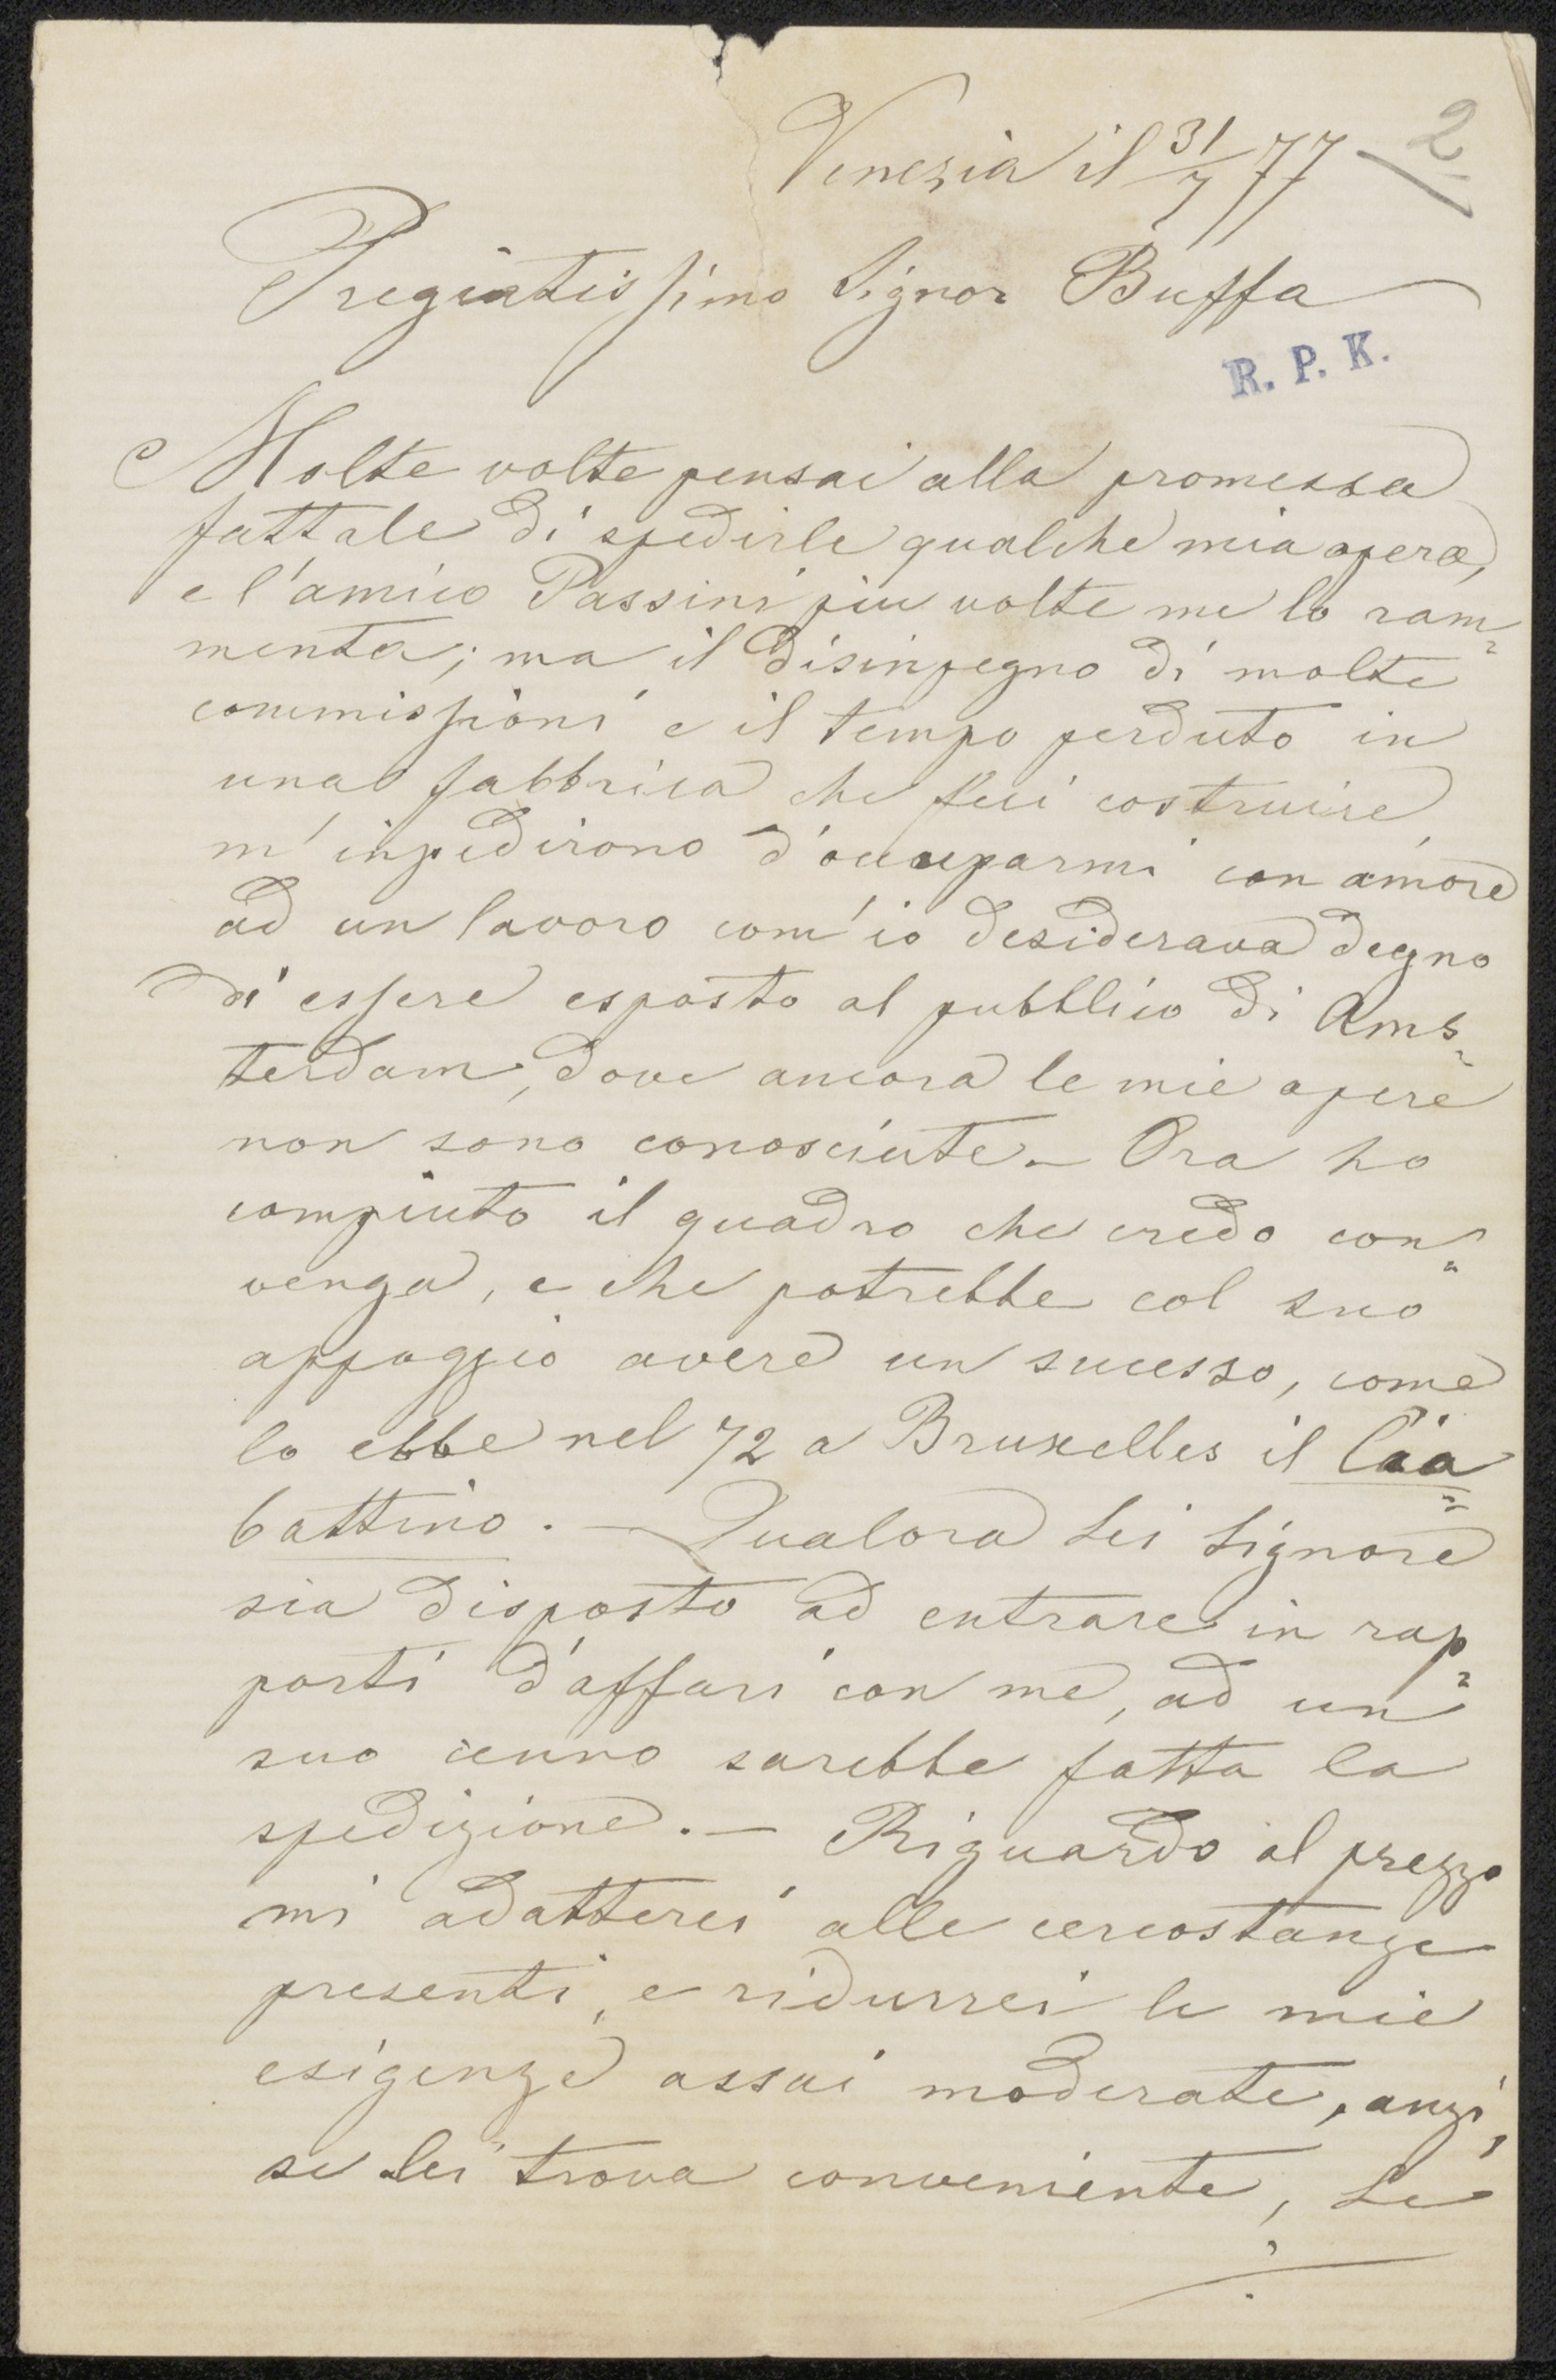 Venezia il 31/7 77
2
Pregiatissimo Signor Buffa
R. P. K.
Molte volte pensai alla promessa
fattale di spedirle qualche mia opera,
e l'amico Passini piu volte me lo ram=
menta; ma il disinpegno di molte
commissioni e il tempo perduto in
una fabbrica che feci costruire
m'inpedirono d'occuparmi con amore
ad un lavoro com'io desiderava degno
di essere esposto al pubblico di Ams=
terdam, dove ancora le mie opere
non sono conosciute. – Ora ho
compiuto il quadro che credo con=
venga, e che potrebbe col suo
appoggio avere un sucesso, come
lo ebbe nel 72 a Bruxelles il Cia=
battino. – Qualora Lei Signore
sia disposto ad entrare in rap=
porti d'affari con me, ad un
suo cenno sarebbe fatta la
spedizione. – Riguardo al prezzo
mi adatterei alle cercostanze
presenti, e ridurrei le mie
esigenze assai moderate, anzi,
se Lei trova conveniente, Le